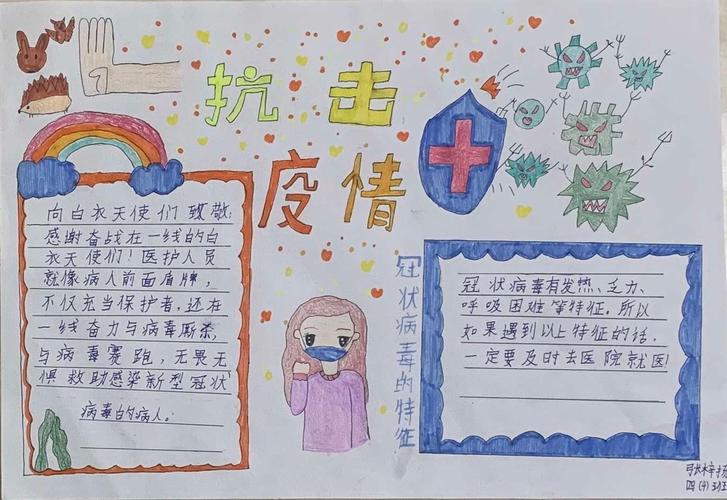 抗击
疫情
向白衣天使们致敬:
感谢奋战在一线的白
衣天使们!医护人员
就像病人前面盾牌,
不仅充当保护者,还在
一线奋力与病毒厮杀,
与病毒赛跑,无畏无
惧救助感染新型冠状
病毒的病人。
冠状病毒的特征
冠状病毒有发热、乏力、
呼吸困难等特征。所以
如果遇到以上特征的话,
一定要及时去医院就医!
四(4)班